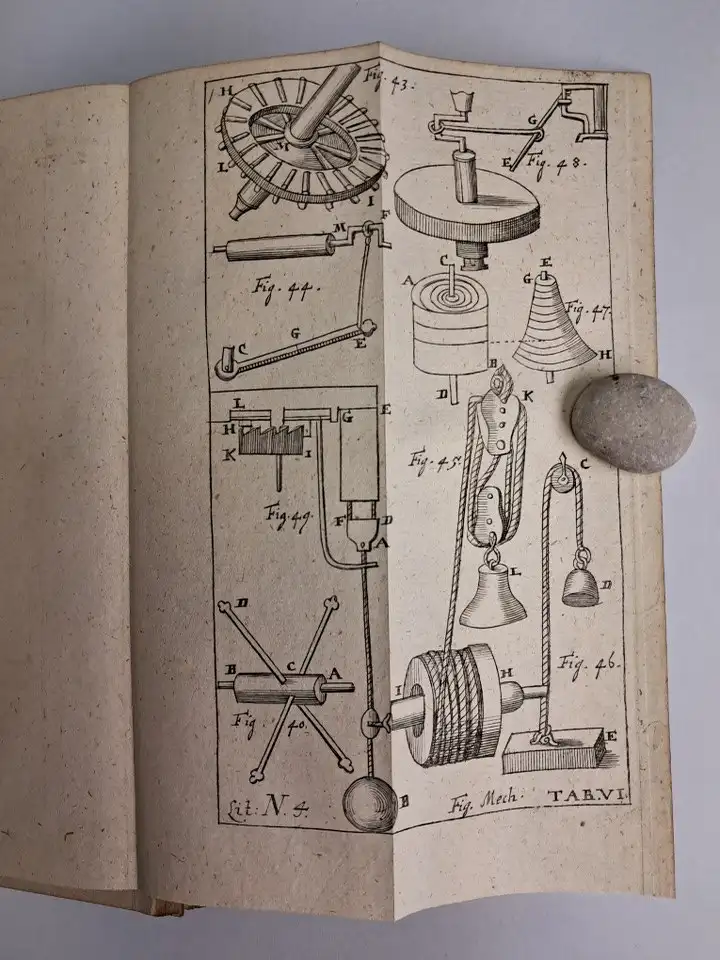 Fig. 43.
H
M
L
I
Fig. 48.
F
G
E
M
F
Fig. 44.
G
C
E
C
A
B
D
E
G
Fig. 47.
H
L
G
E
H
K
I
Fig. 49.
F
D
A
K
Fig. 45.
L
C
D
D
B
C
A
Fig 40.
I
H
Fig. 46.
E
B
Lit: N. 4.
Fig. Mech. TAB.VI.